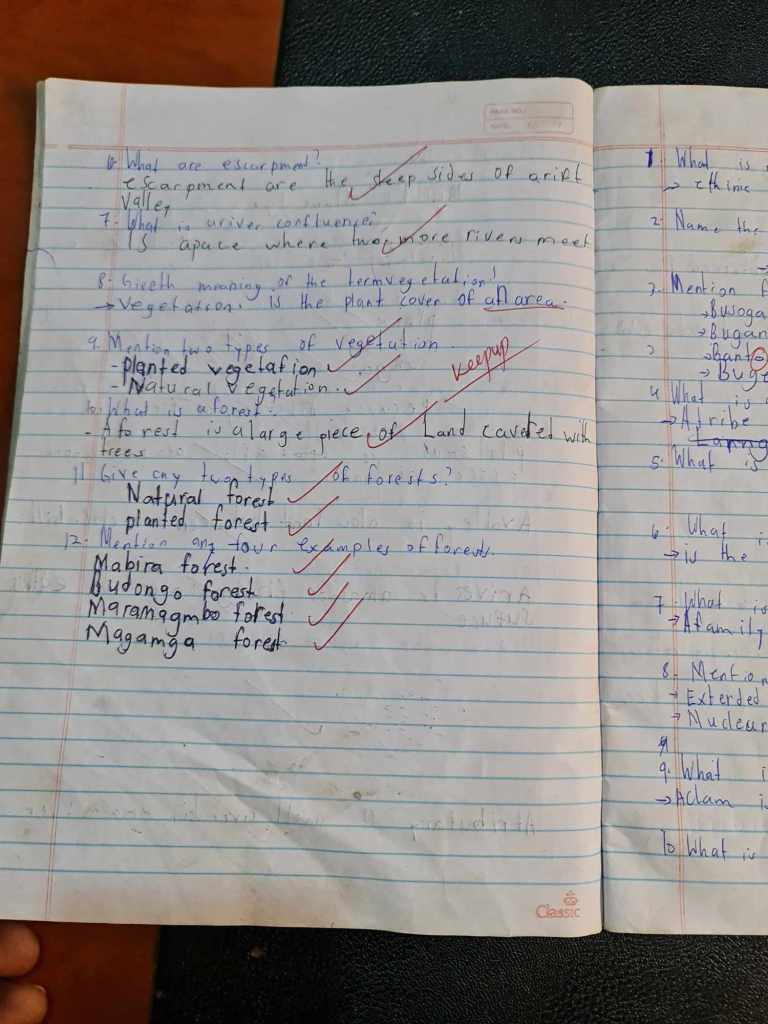 6. What are escarpment?
escarpment are the steep sides of arift
valley
7. What is ariver confluence?
Is apace where two or more rivers meet
8. Giveth meaning of the termvegetation!
→ Vegetation. Is the plant cover of an area.
9. Mention two types of vegetation.
- planted vegetation.
- Natural vegetation.
keepup
10. What is aforest.
- Aforest is alarge piece of Land cavered with
trees
11. Give any two types of forests?
Natural forest
planted forest
12. Mention any four examples of forests.
Mabira forest.
Budongo forest
Maramagmbo forest
Magamga forest
Classic
1. What is
→ ethinic
2. Name the
3. Mention f
→ Busoga
→ Bugan
→ Bant
→ Buge
4. What is
→ Atribe
5. What is
6. What is
→ is the
7. What is
→ Afamily
8. Mention
→ Exterded
→ Nuclear
9. What i
→ Aclam is
10 What is